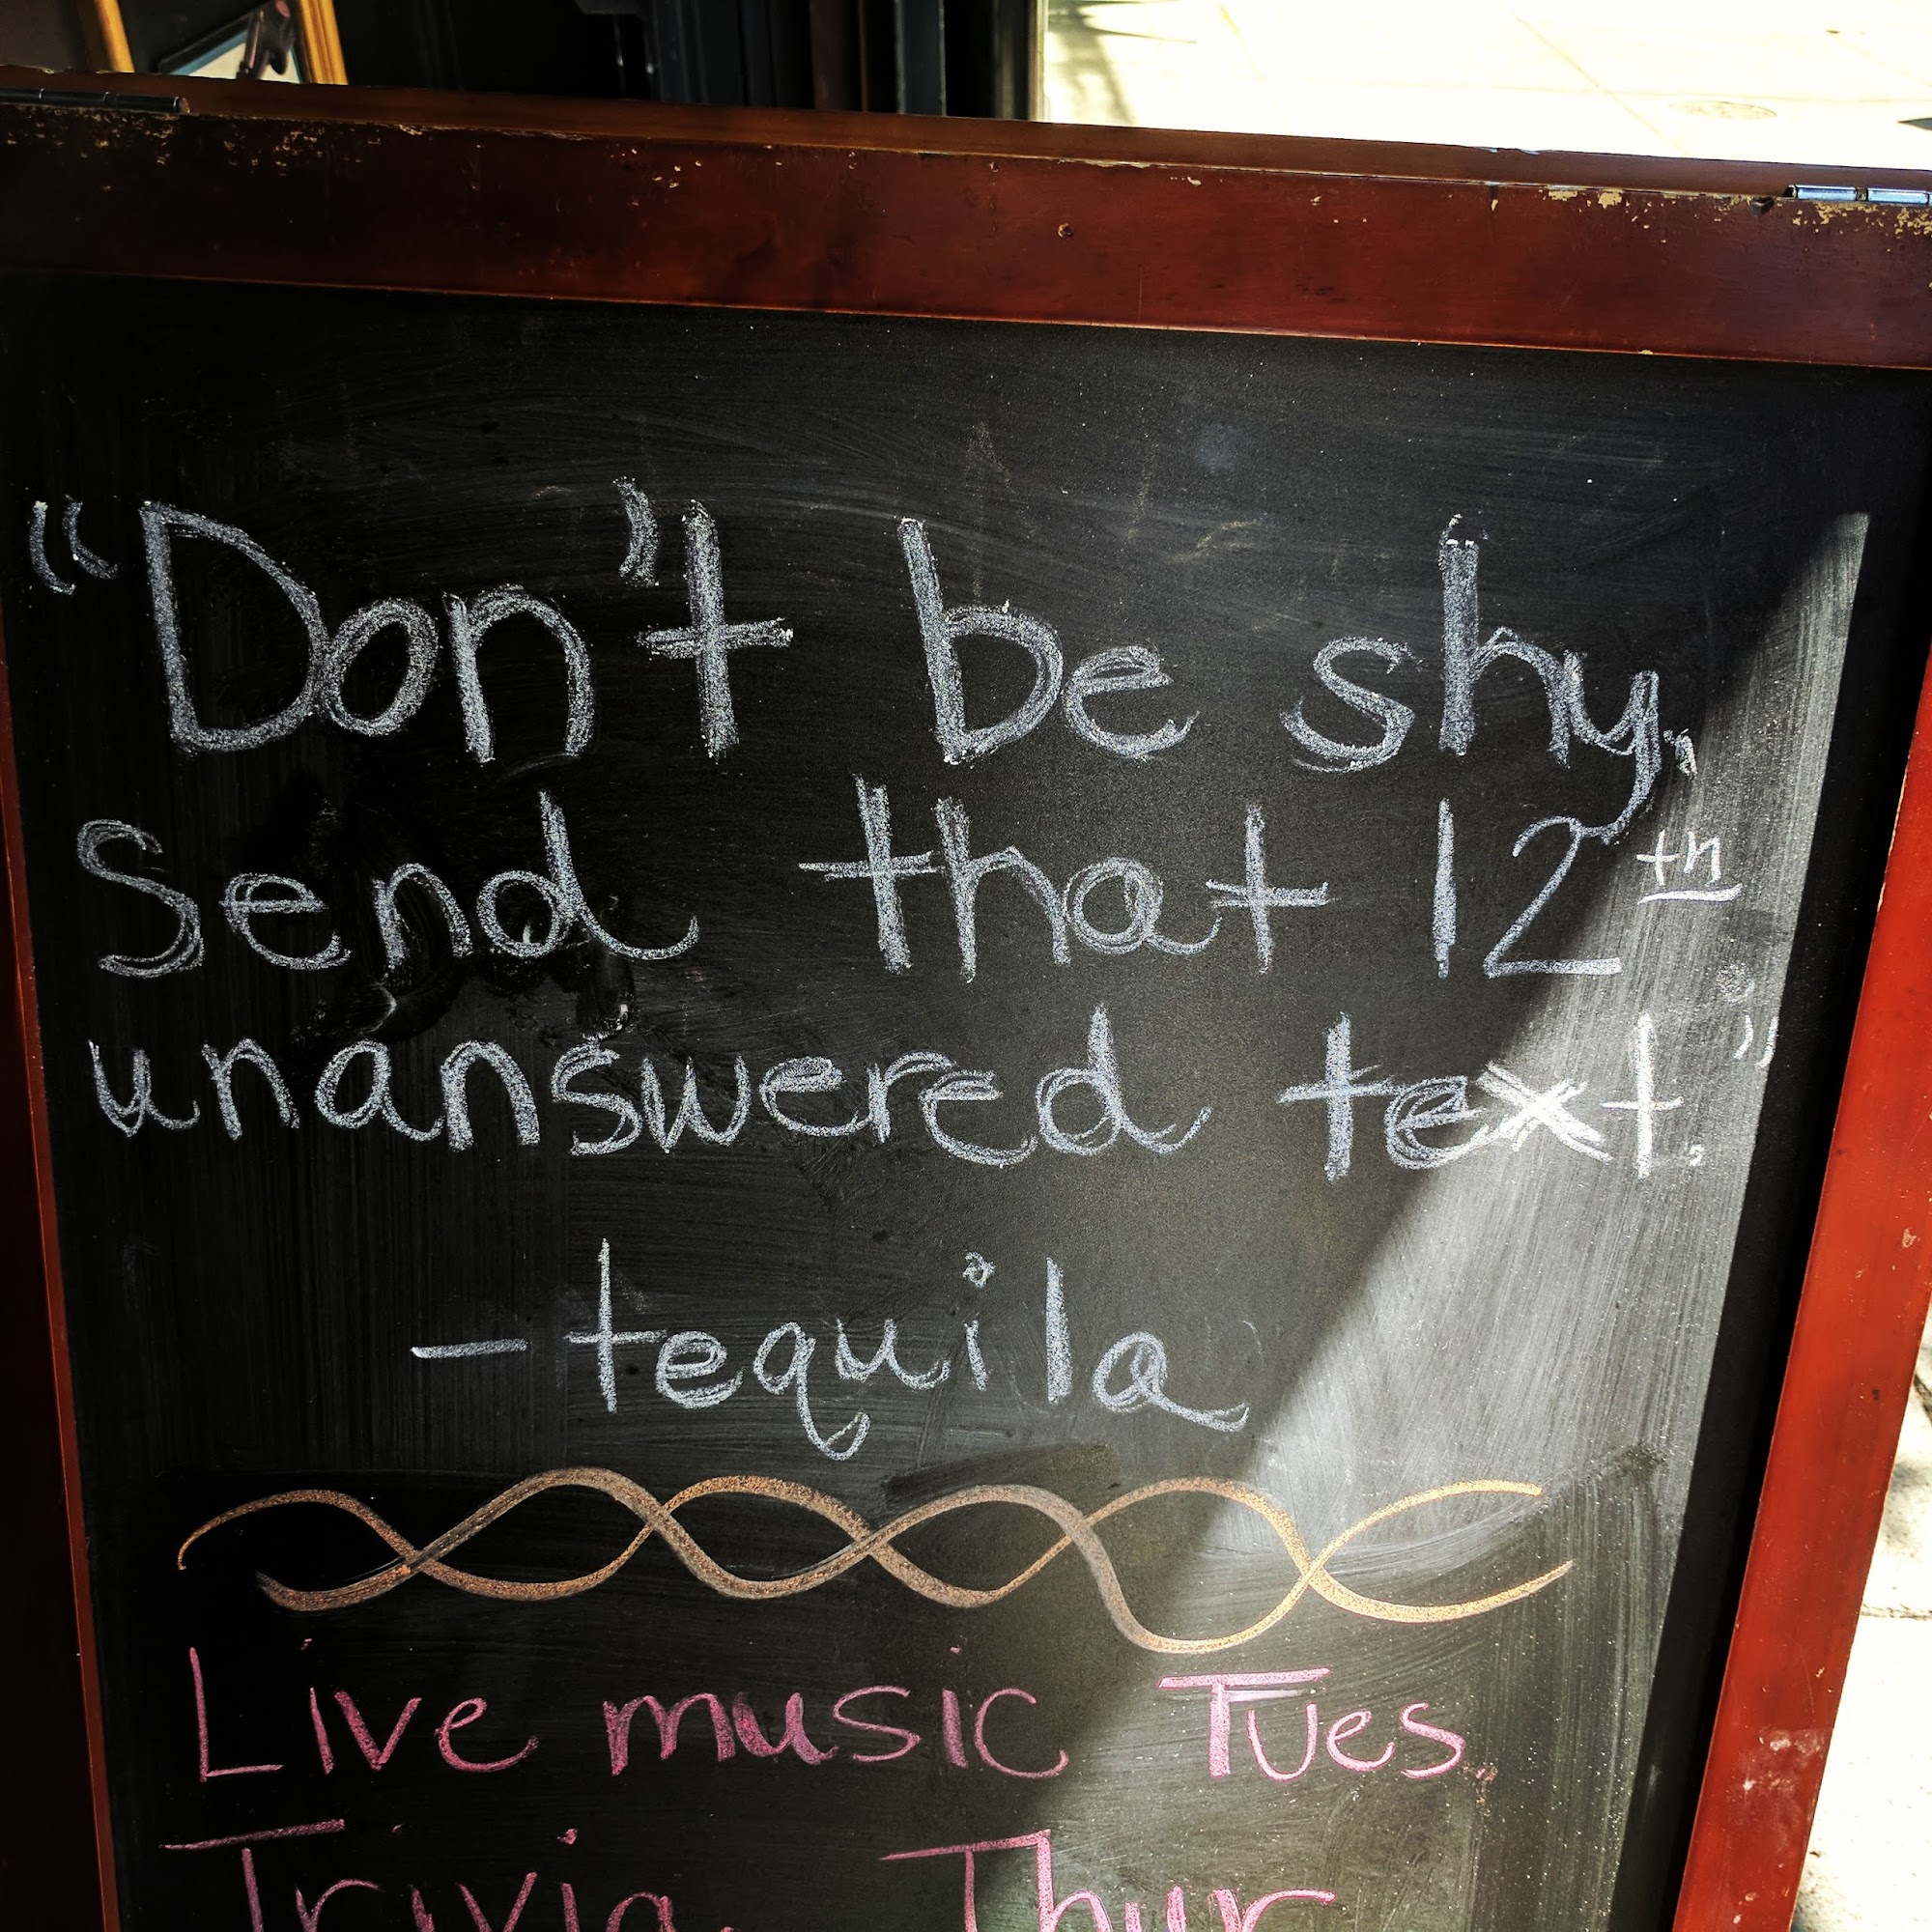 “Don't be shy,
Send that 12th
unanswered text.”
- tequila
Live music Tues.
Trivia Thur